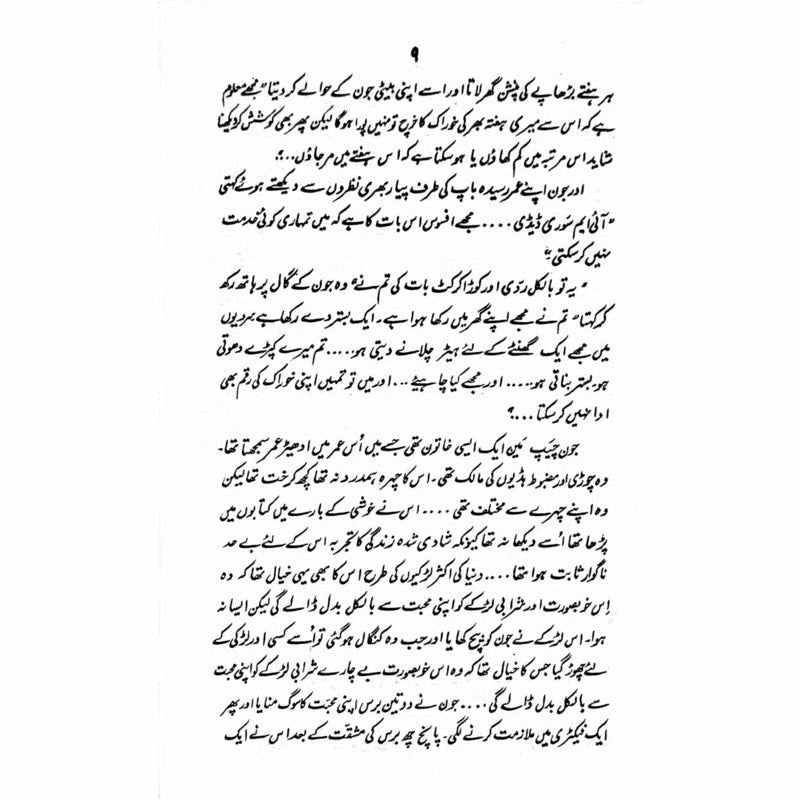 ۹
ہر ہفتے بڑھاپے کی پنشن گھر لاتا اور اسے اپنی بیٹی جون کے حوالے کر دیتا "مجھے معلوم
ہے کہ اس سے میری ہفتہ بھر کی خوراک کا خرچ تو نہیں پورا ہو گا لیکن پھر بھی کوشش کر دیکھنا
شاید اس مرتبہ میں کم کھاؤں یا ہو سکتا ہے کہ اس ہفتے میں مر جاؤں...."
اور جون اپنے عمر رسیدہ باپ کی طرف پیار بھری نظروں سے دیکھتے ہوئے کہتی
"آئی ایم سوری ڈیڈی .... مجھے افسوس اس بات کا ہے کہ میں تمہاری کوئی خدمت
نہیں کر سکتی۔"
"یہ تو بالکل ردّی اور کوڑا کرکٹ بات کی تم نے" وہ جون کے گال پر ہاتھ رکھ
کر کہتا "تم نے مجھے اپنے گھر میں رکھا ہوا ہے۔ ایک بستر دے رکھا ہے سردیوں
میں مجھے ایک گھنٹے کے لئے ہیٹر چلانے دیتی ہو..... تم میرے کپڑے دھوتی
ہو بستر بناتی ہو..... اور مجھے کیا چاہیئے ... اور میں تو تمہیں اپنی خوراک کی رقم بھی
ادا نہیں کر سکتا ....؟
جون چیپ مین ایک ایسی خاتون تھی جسے میں اُس عمر میں ادھیڑ عمر سمجھتا تھا۔
وہ چوڑی اور مضبوط ہڈیوں کی مالک تھی۔ اس کا چہرہ ہمدرد نہ تھا کچھ کرخت تھا لیکن
وہ اپنے چہرے سے مختلف تھی .... اس نے خوشی کے بارے میں کتابوں میں
پڑھا تھا اُسے دیکھا نہ تھا کیونکہ شادی شدہ زندگی کا تجربہ اس کے لئے بے حد
ناگوار ثابت ہوا تھا.... دنیا کی اکثر لڑکیوں کی طرح اس کا بھی یہی خیال تھا کہ وہ
اِس خوبصورت اور شرابی لڑکے کو اپنی محبت سے بالکل بدل ڈالے گی لیکن ایسا نہ
ہوا۔ اس لڑکے نے جون کو بیچ کھایا اور جب وہ کنگال ہو گئی تو اُسے کسی اور لڑکی کے
لئے چھوڑ گیا جس کا خیال تھا کہ وہ اس خوبصورت بے چارے شرابی لڑکے کو اپنی محبت
سے بالکل بدل ڈالے گی .... جون نے دو تین برس اپنی محبّت کا سوگ منایا اور پھر
ایک فیکٹری میں ملازمت کرنے لگی۔ پانچ چھ برس کی مشقّت کے بعد اس نے ایک